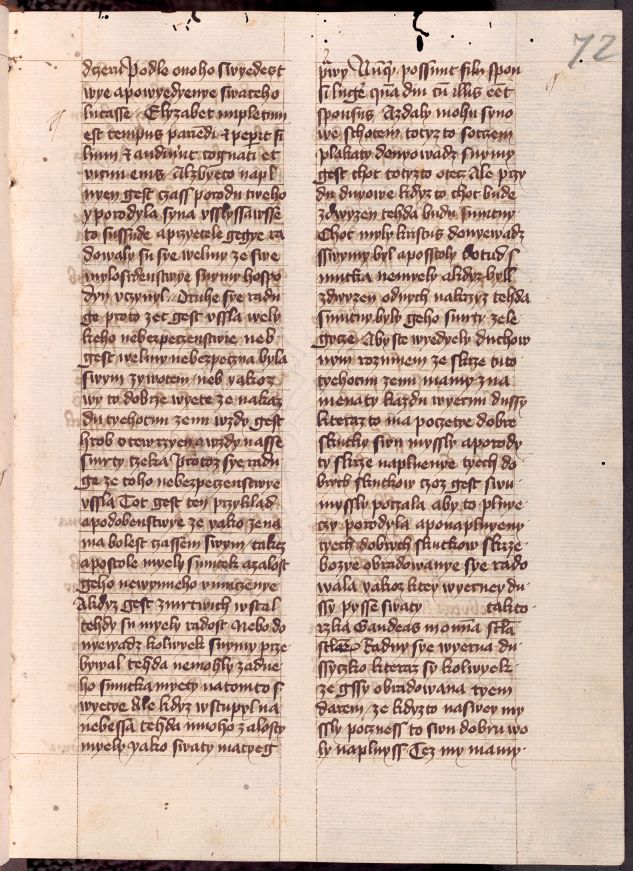 72
dczeru Podle onoho swyedest
wye apowyedyenye swateho
lucasse · Elyzabet impletum
est tempus pariedi ⁊ pepit fi
lium ⁊ audiut cognati et
vicini eius Alzbyeto napl
nyen gest czass porodu tweho
y porodyla syna vsslyssawsse
to susside a przyetele gegye ra
dowaly su sye welmy ze swe
mylosrdenstwye snymy hospo
dyn vczynyl · Druhe sye radu
ge proto zet gest vssla wely
keho nebezpeczenstwie neb
gest welmy nebezpeczna byla
swym zywotem neb yakoz
wy to dobrze wyete ze nakaz
du tyehotnu zenu wzdy gest
hrob otewrzyen awzdy nasse
smrty czeka Protoz sye radu
ge ze toho nebezpeczenstwye
vssla Tot gest ten przyklad
apodobenstwye ze yako zena
ma bolest czassem swym takez
apostole myely smutek azalost
geho newynneho vmuczenye
Akdyz gest zmrtwich wstal
tehdy su myely radost Nebo do
nyewadz kolwyek snymy prze
bywal tehda nemohly zadne
ho smutka myety natomto s
wyetye Ale kdyz wstupyl na
nebessa tehda mnoho zalosty
myely yako swaty matheg
prwy Nuq̄ possunt filii spon
si luge q̄ādiu cu illis eet
sponsus Azdaly mohu syno
we schotem totyz to sotczem
plakaty donyowadz snymy
gest chot totyzto otecz Ale przy
du dnyowe kdyz to chot bude
zdwyzen tehda budu smutny
Chot myly kristus donyewadz
sswymy byl aposstoly dotud s
mutka nemyely akdyz byl
zdwyzen odnych nakrzyz tehda
smutny byly geho smrty zele
gycze · Aby ste wyedyely duchow
nym rozumem ze skrze tuto
tyehotnu zenu mamy zna
menaty kazdu wyernu dussy
kteraz to ma poczetye dobre
skutky swu myssly aporody
ty skrze naplnenye tyech do
brych skutkow czoz gest swu
myssly poczala aby to plnye
czy porodyla aponaplnyeny
tyech dobrych skutkow skrze
bozye obradowanye sye rado
wala yakoz ktey wyerney du
ssy pysse swaty takto
rzka Gaudeas Raduy sye wyerna du
ssyczko kteraz sy kolwyek
ze gssy obradowana tyem
darem ze kdyzto naswey my
ssly poczness to swu dobru wo
ly naplnyss · Tez my mamy